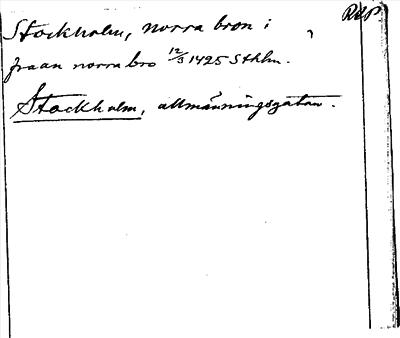 Stockholm, norra bron i
fraan norra bro 12/3 1425 Sthlm.
Stockholm, allmänningsgatan.